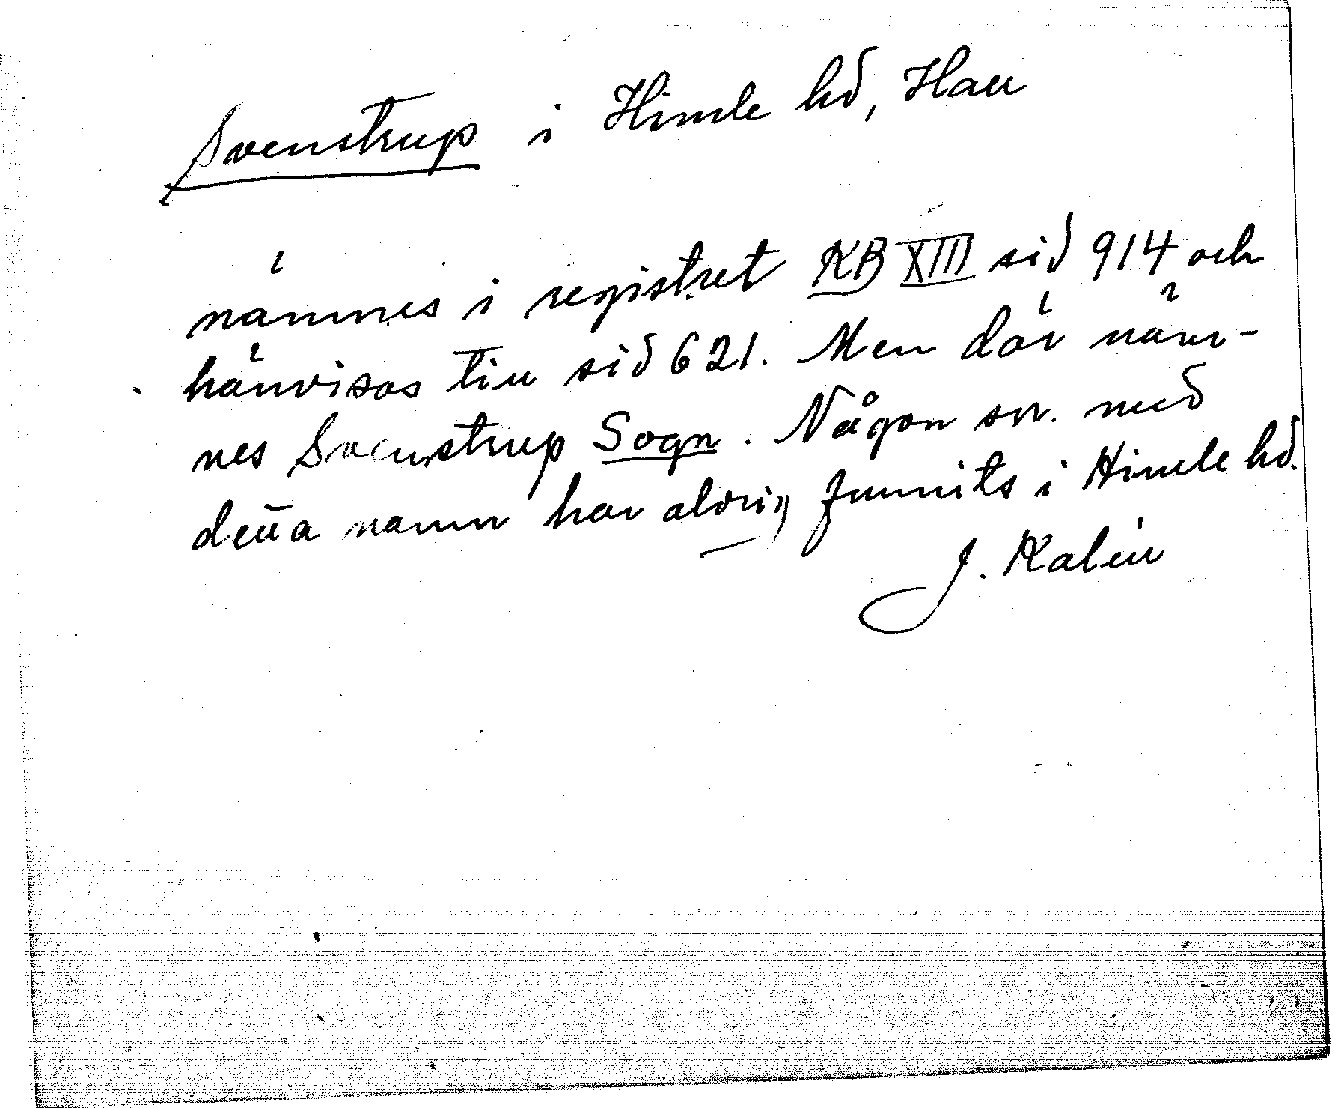 Svenstrup i Himle hd, Hall
nämnes i registret KB XIII sid 914 och
hänvisas till sid 621. Men där näm-
nes Svenstrup Sogn. Någon sn. med
detta namn har aldrig funnits i Himle hd.
J. Kalén